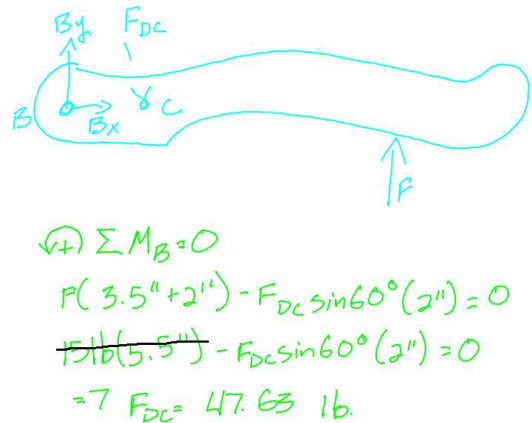 By F_DC
B Bx C
F
(+) ΣM_B=0
F(3.5"+2") - F_DC sin60°(2")=0
15lb(5.5") - F_DC sin60°(2")=0
=7 F_DC= 47.63 lb.